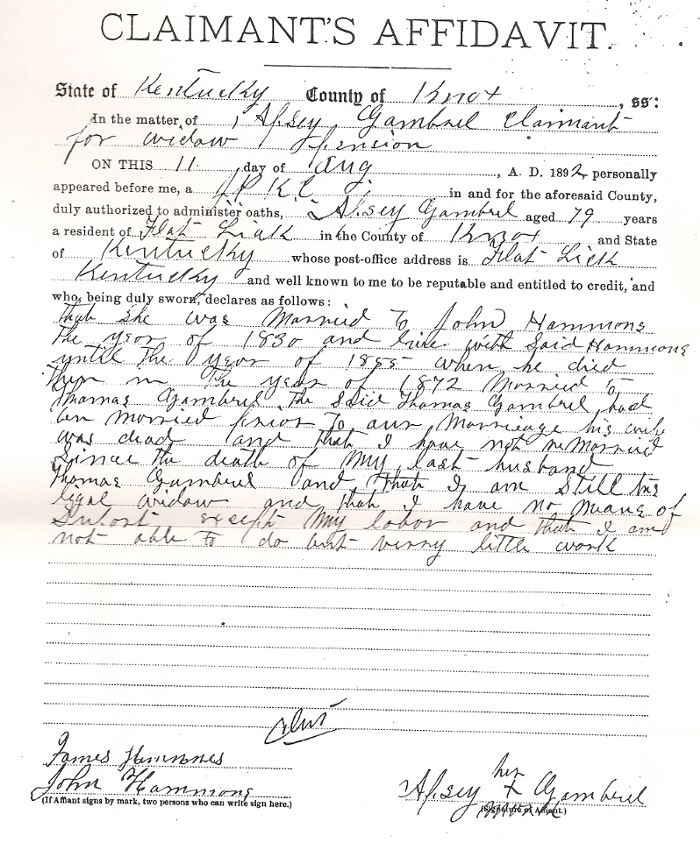 CLAIMANT'S AFFIDAVIT.
State of Kentucky County of Knox, ss:
In the matter of Alsey Gambrel Claimant
for widow pension
ON THIS 11, day of Aug, A. D. 1892, personally
appeared before me, a J P K C in and for the aforesaid County,
duly authorized to administer oaths, Alsey Gambrel aged 79 years
a resident of Flat Lick in the County of Knox, and State
of Kentucky whose post-office address is Flat Lick
Kentucky and well known to me to be reputable and entitled to credit, and
who, being duly sworn, declares as follows:
that she was Married To John Hammons
The year of 1830 and live with Said Hammons
until The year of 1855 when he died
Then in The year of 1872 Married to
Thomas Gambrel The Said Thomas Gambrel had
ben married prior To our Marrieage his wife
was dead and that I have not reMarried
Since the death of My last husband
Thomas Gambrel and That I am Still his
legal widow and that I have no means of
Suport except My labor and that I am
not able to do but verry little work
James Hammons
John Hammons
(If Affiant signs by mark, two persons who can write sign here.)
her
Alsey X Gambrel
mark
(Signature of Affiant.)